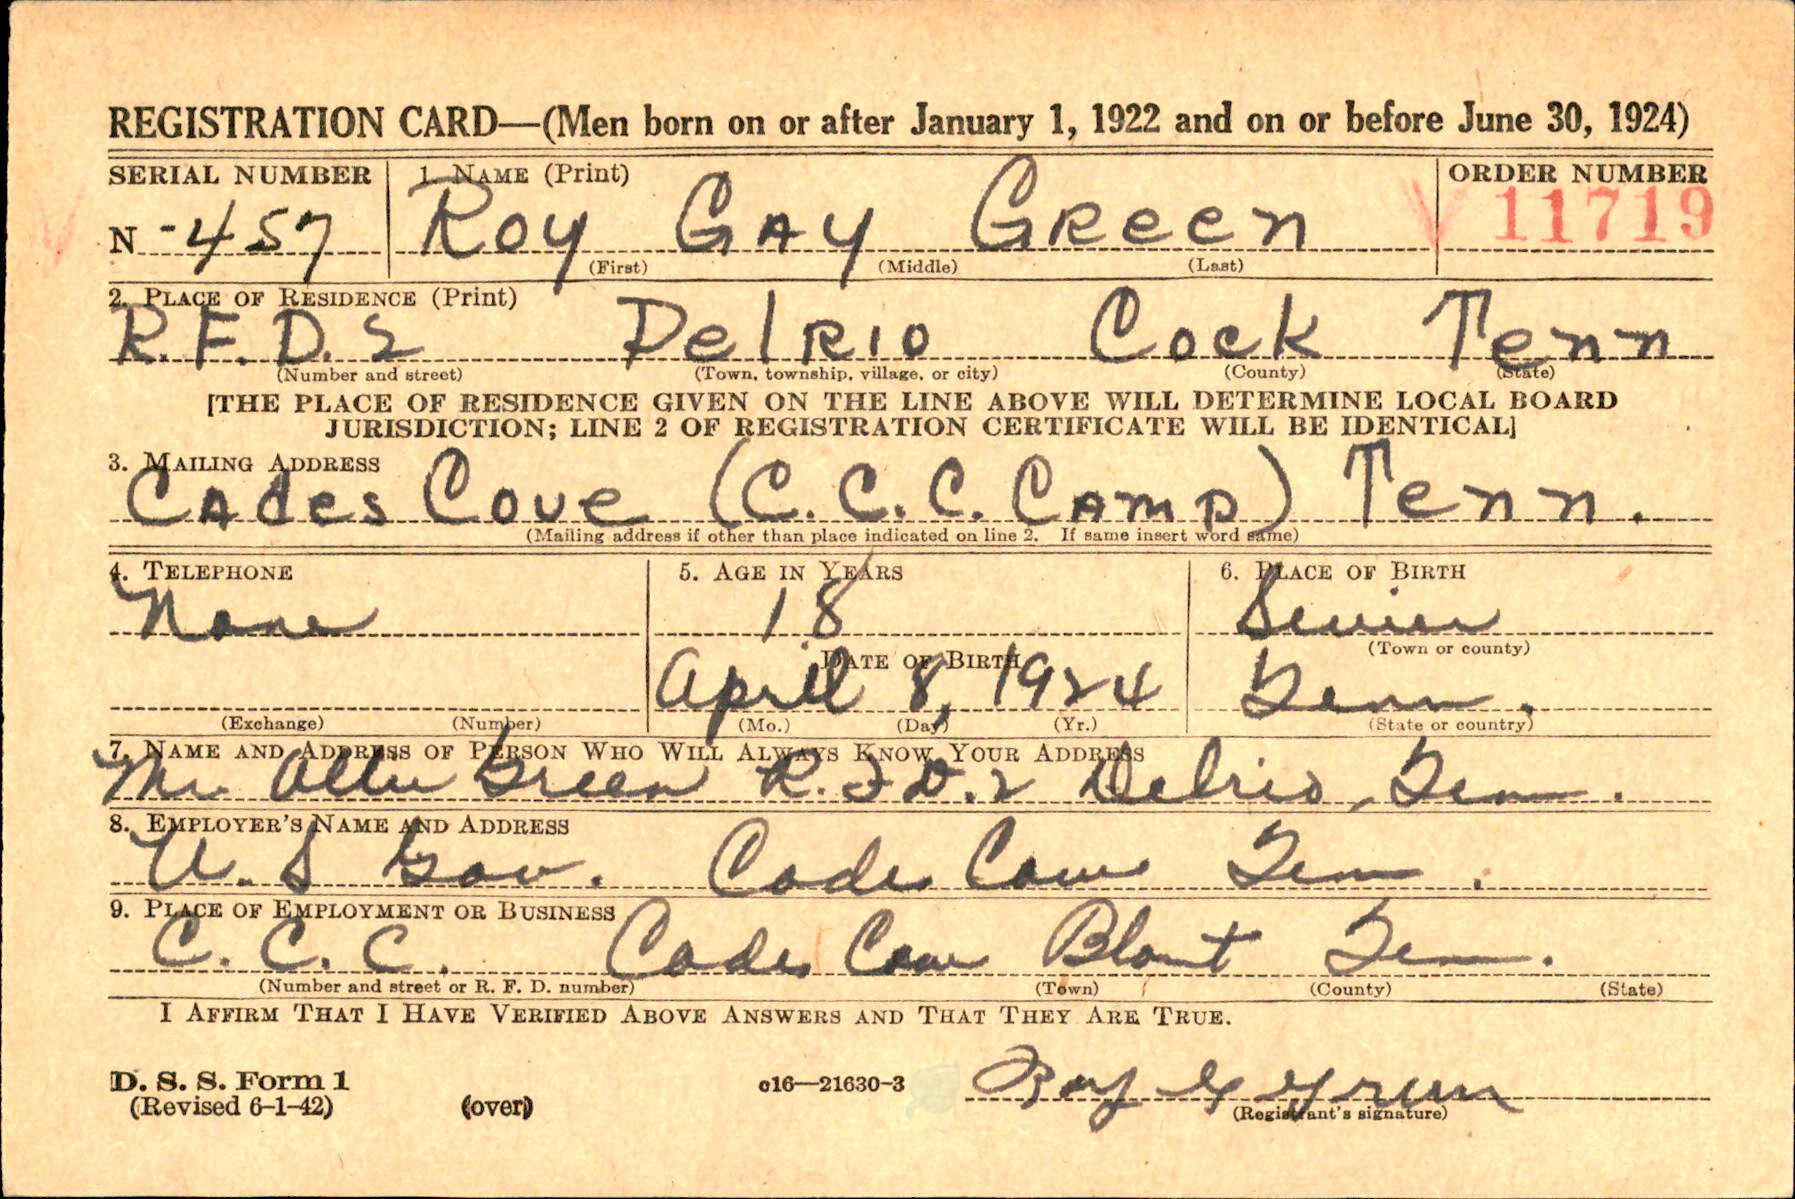 REGISTRATION CARD—(Men born on or after January 1, 1922 and on or before June 30, 1924)
SERIAL NUMBER 1. NAME (Print) ORDER NUMBER
N -457 Roy GAy GReen 11719
(First) (Middle) (Last)
2. PLACE OF RESIDENCE (Print)
R.F.D.2 DelRio Cock Tenn
(Number and street) (Town, township, village, or city) (County) (State)
[THE PLACE OF RESIDENCE GIVEN ON THE LINE ABOVE WILL DETERMINE LOCAL BOARD
JURISDICTION; LINE 2 OF REGISTRATION CERTIFICATE WILL BE IDENTICAL]
3. MAILING ADDRESS
CAdes Cove (C.C.C. CAmp) Tenn.
(Mailing address if other than place indicated on line 2. If same insert word same)
4. TELEPHONE 5. AGE IN YEARS 6. PLACE OF BIRTH
None 18 Sevier
DATE OF BIRTH (Town or county)
April 8, 1924 Tenn.
(Exchange) (Number) (Mo.) (Day) (Yr.) (State or country)
7. NAME AND ADDRESS OF PERSON WHO WILL ALWAYS KNOW YOUR ADDRESS
Mr Green R.F.D.2 Delrio, Tenn.
8. EMPLOYER'S NAME AND ADDRESS
U.S Gov. Cades Cove Tenn.
9. PLACE OF EMPLOYMENT OR BUSINESS
C.C.C. Cades Cove Blount Tenn.
(Number and street or R. F. D. number) (Town) (County) (State)
I AFFIRM THAT I HAVE VERIFIED ABOVE ANSWERS AND THAT THEY ARE TRUE.
D. S. S. Form 1
(Revised 6-1-42) (over) c16—21630-3 Roy G Green
(Registrant's signature)